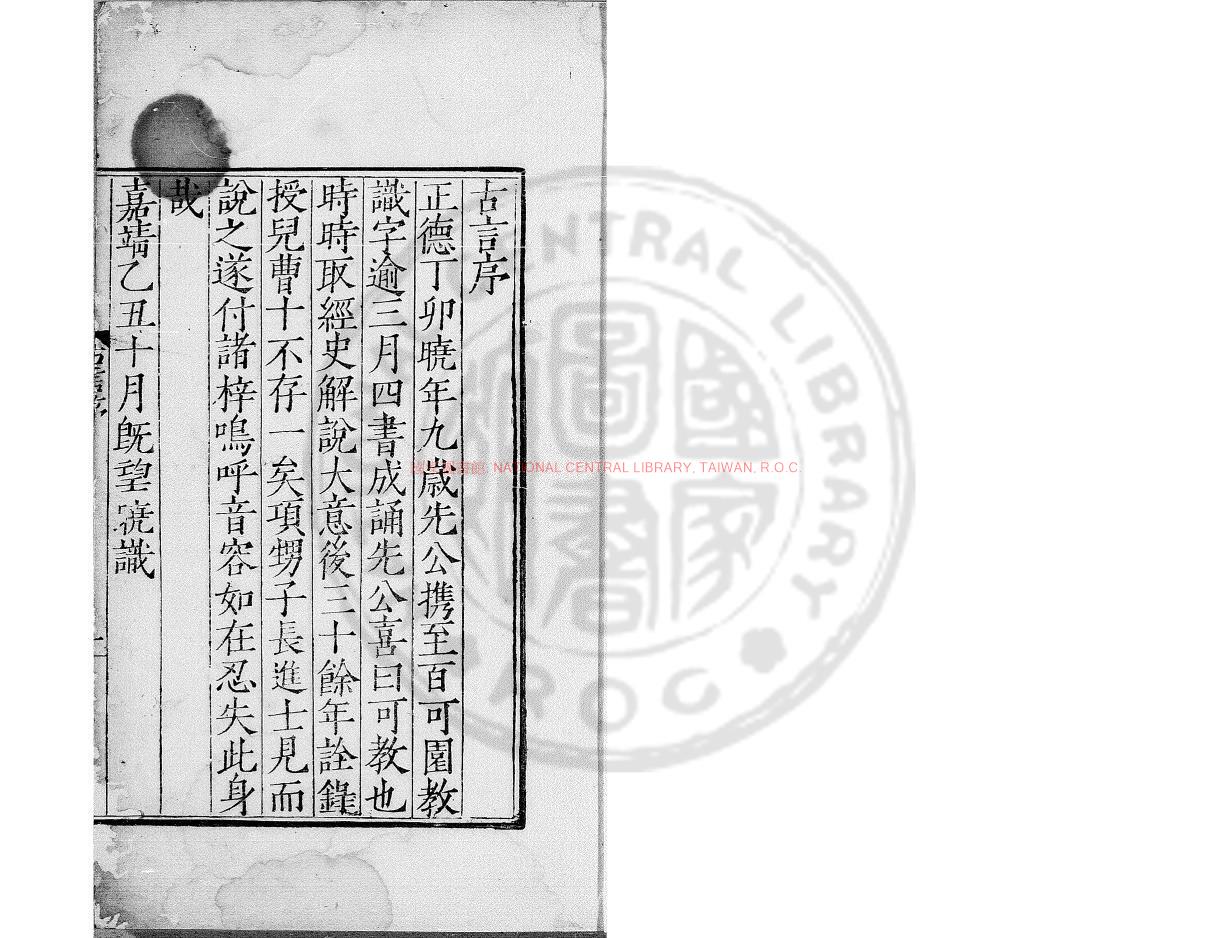 古言序
正德丁卯曉年九歲先公携至百可園教
識字逾三月四書成誦先公喜曰可教也
時時取經史解說大意後三十餘年詮錄
授兒曹十不存一矣項甥子長進士見而
說之遂付諸梓嗚呼音容如在忍失此身
哉
嘉靖乙丑十月既望曉識
NATIONAL CENTRAL LIBRARY, TAIWAN, R.O.C.
CENTRAL LIBRARY
R O C
國家圖書館